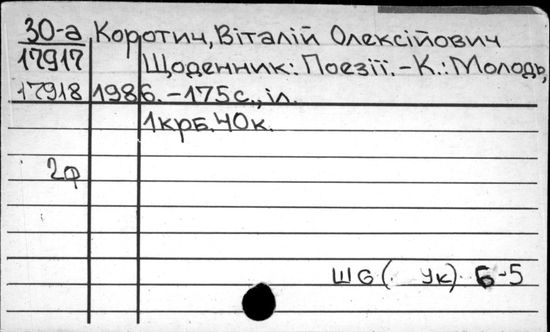 30-а Коротич, Віталій Олексійович
17917 Щоденник: Поезії. - К.: Молодь,
17918 1986. - 175 с., іл.
1крб. 40к.
2ф
Ш6(. Ук) Б-5